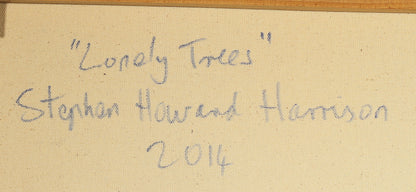 "Lonely Trees"
Stephen Howard Harrison
2014